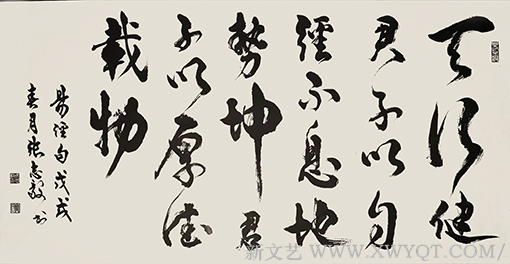 天行健
君子以自
彊不息地
勢坤君
子以厚德
載物
易經句戊戌
春月張志毅书
新文艺 - WWW.XWYQT.COM